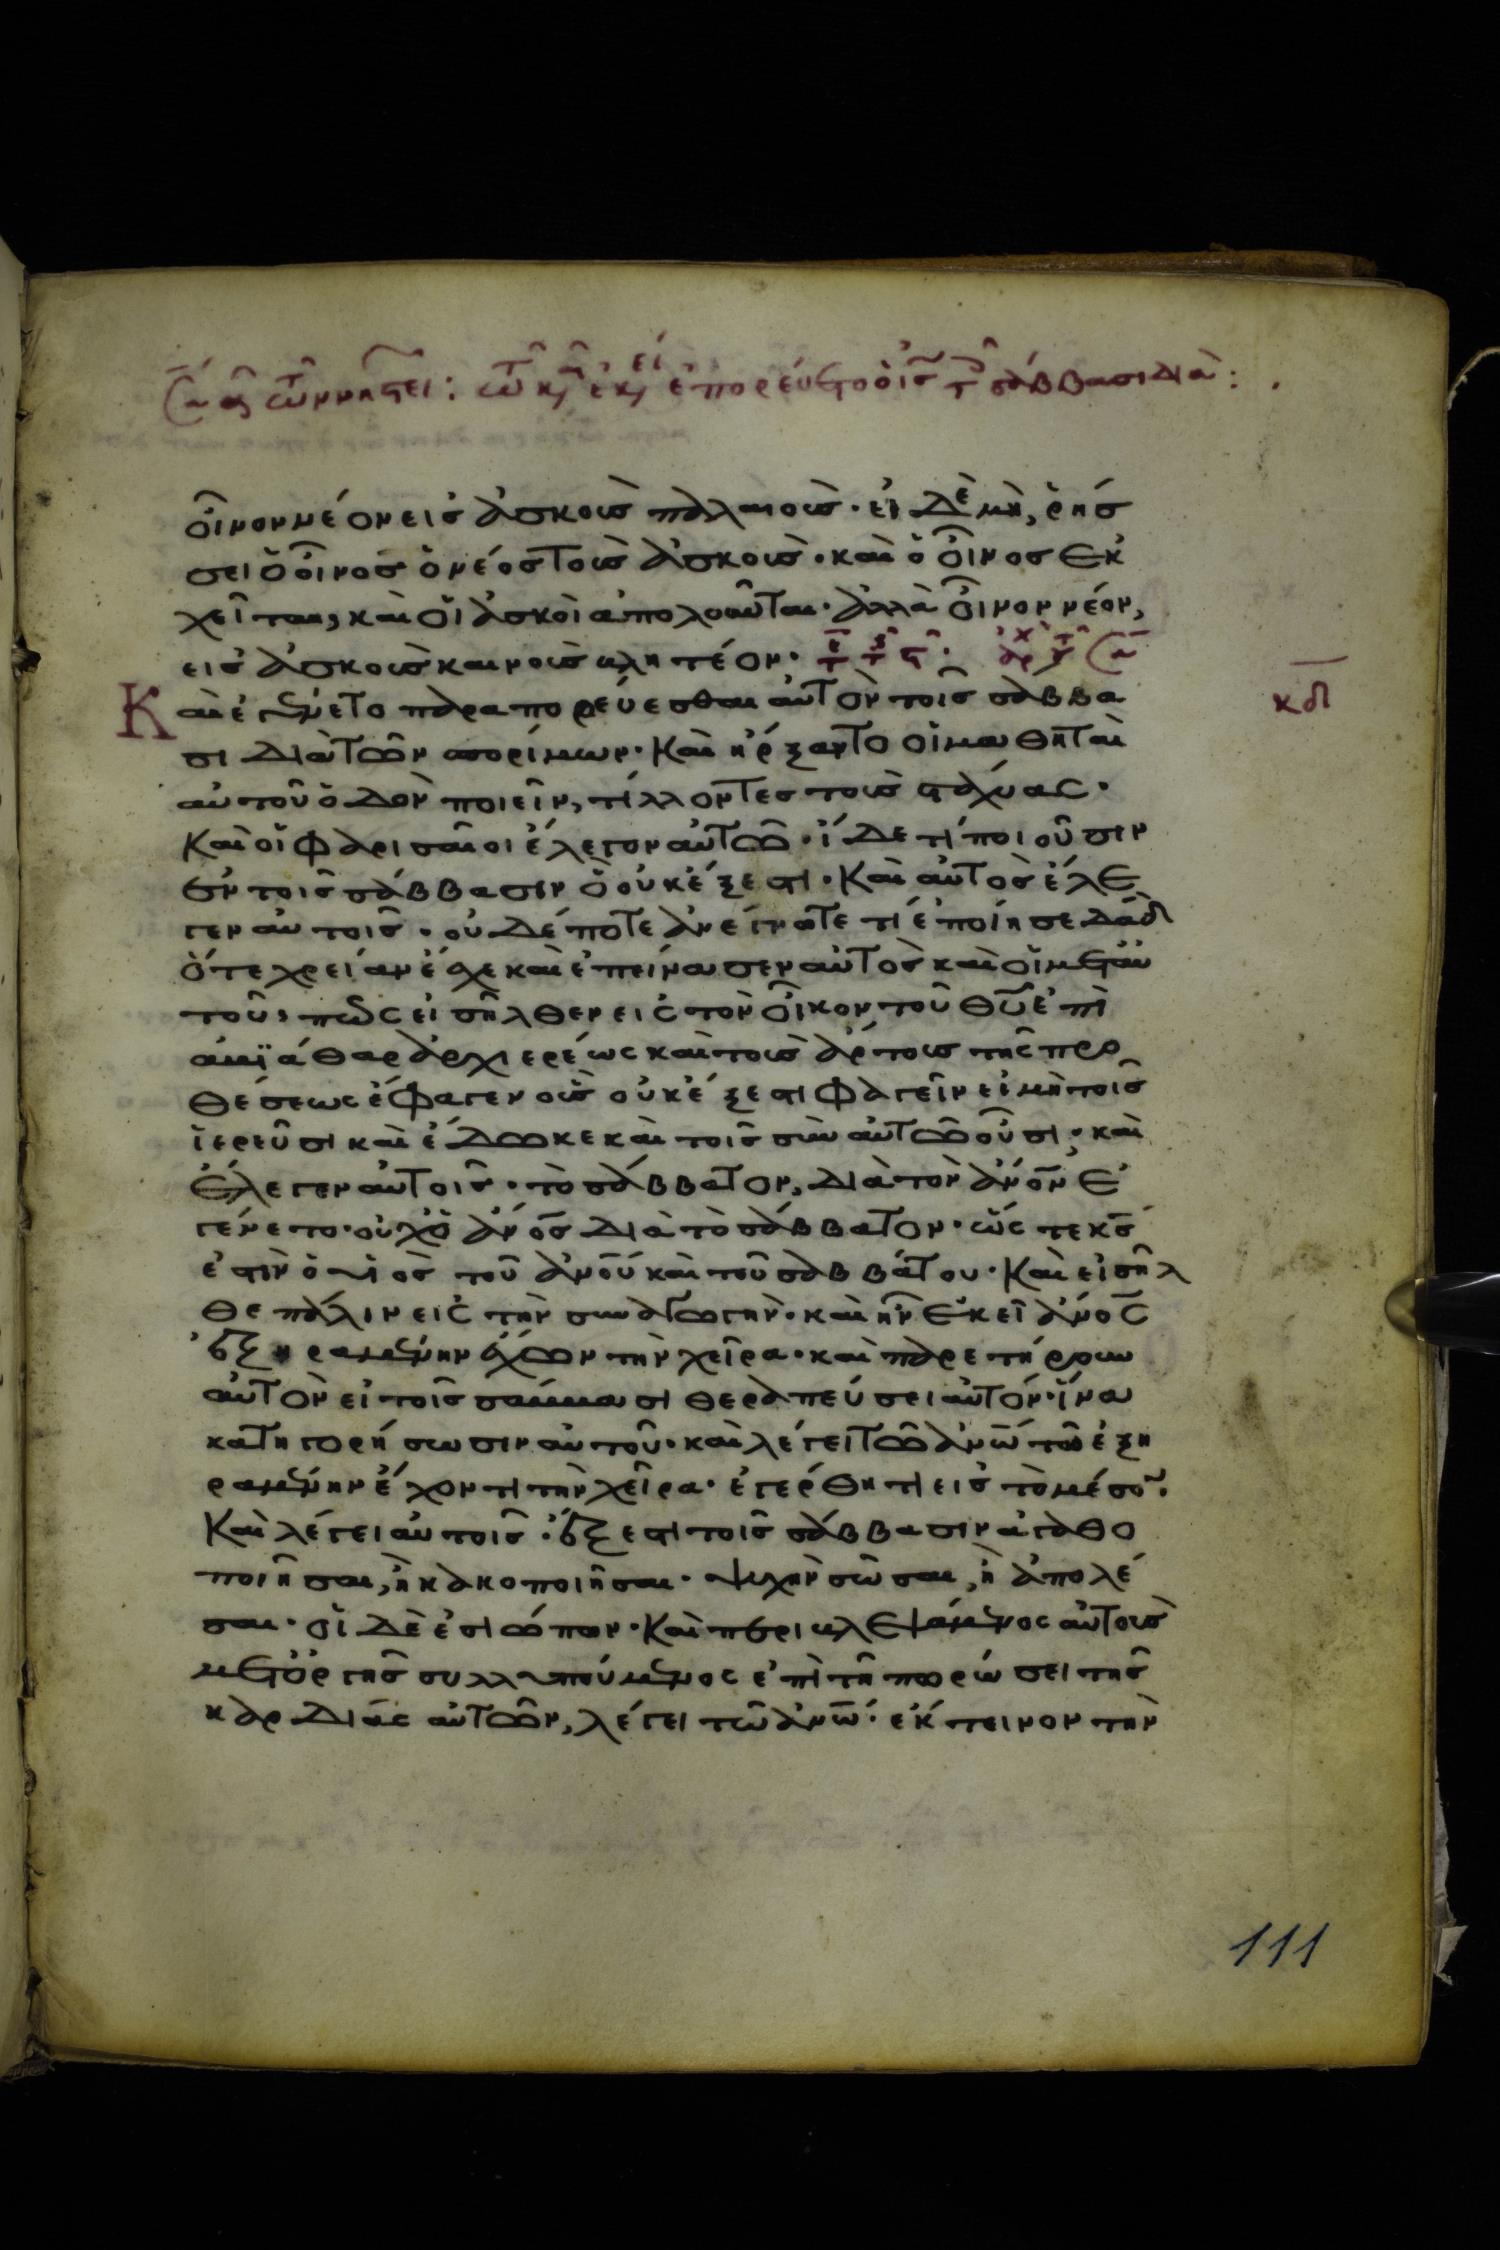 οἶνον νέον εἰς ἀσκοὺς παλαιοὺς· εἰ δὲ μὴ, ῥήσ
σει ὁ οἶνος ὁ νέος τοὺς ἀσκοὺς· καὶ ὁ οἶνος ἐκ
χεῖται, καὶ οἱ ἀσκοὶ ἀπολοῦνται· ἀλλὰ οἶνον νέον,
εἰς ἀσκοὺς καινοὺς βλητέον·
κδ
Καὶ ἐγένετο παραπορεύεσθαι αὐτὸν τοῖς σάββα
σι διὰ τῶν σπορίμων· Καὶ ἤρξαντο οἱ μαθηταὶ
αὐτοῦ ὁδὸν ποιεῖν, τίλλοντες τοὺς στάχυας·
Καὶ οἱ φαρισαῖοι ἔλεγον αὐτῶ· ἴδε τί ποιοῦσιν
ἐν τοῖς σάββασιν ὃ οὐκ έξεστι· Καὶ αὐτὸς ἔλε
γεν αὐτοῖς· οὐδέποτε ἀνέγνατε τί ἐποίησε δαδ
ὅτε χρείαν ἔσχε καὶ ἐπείνασεν αὐτὸς καὶ οἱ μετ αὐ
τοῦ, πῶς εἰσῆλθεν εἰς τὸν οἶκον τοῦ θυ ἐπὶ
ἀβϊάθαρ ἀρχιερέως καὶ τοὺς ἄρτους τῆς προ
θέσεως ἔφαγεν οὓς οὐκ έξεστι φαγεῖν εἰ μὴ τοῖς
ἱερεῦσι καὶ ἔδωκε καὶ τοῖς σὺν αὐτῶ οὖσι· καὶ
ἔλεγεν αὐτοῖς· τὸ σάββατον, διὰ τὸν ἄνον ἐ
γένετο· οὐχ ὁ ἄνος διὰ τὸ σάββατον· ὥς τε κς
ἐστὶν ὁ υἱὸς τοῦ ἀνου καὶ τοῦ σαββάτου· Καὶ εἰσῆλ
θε πάλιν εἰς τὴν συναγωγὴν· καὶ ἦν ἐκεῖ ἄνος
ἐξηραμένην ἔχων τὴν χεῖρα· καὶ παρετήρουν
αὐτὸν εἰ τοῖς σάββασι θεραπεύσει αὐτόν· ἵνα
κατηγορήσωσιν αὐτοῦ· καὶ λέγει τῶ ἀνω τῶ ἐξη
ραμένην ἔχοντι τὴν χεῖρα· ἐγέρθητι εἰς τὸ μέσον·
Καὶ λέγει αὐτοῖς· ἔξεστι τοῖς σάββασιν ἀγαθο
ποιῆσαι, ἢ κακοποιῆσαι· ψυχὴν σῶσαι, ἢ ἀπολέ
σαι· οἱ δὲ ἐσιώπων· Καὶ περιβλεψάμενος αὐτοὺς
μετ ὀργῆς συλλυπούμενος ἐπὶ τῆ πωρώσει τῆς
καρδίας αὐτῶν, λέγει τῶ ἀνω· ἔκτεινον τὴν
111